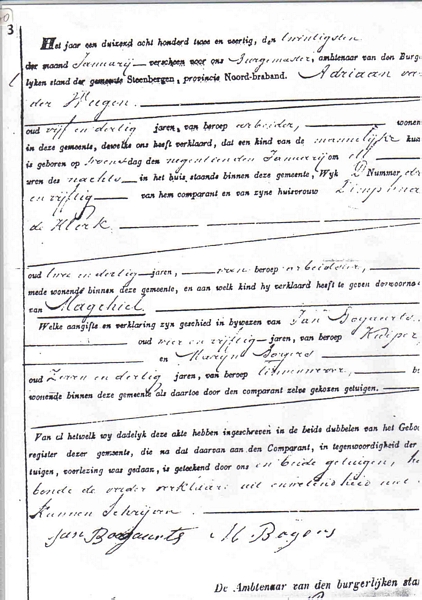 3
Het jaar een duizend acht honderd twee en veertig, den twintigsten
der maand Januarij verscheen voor ons Burgemeester, ambtenaar van den Burge
lyken stand der gemeente Steenbergen, provincie Noord-braband. Adriaan van
der Weegen
oud vijf en dertig jaren, van beroep arbeider, wonen
in deze gemeente, dewelke ons heeft verklaard, dat een kind van de mannelijke kun
is geboren op woensdag den negentienden Januarij om elf
uren des nachts in het huis, staande binnen deze gemeente, Wyk D Nummer
en vijftig van hem comparant en van zyne huisvrouw Dimphna
de Klerk
oud twee en dertig jaren, van beroep arbeidster,
mede wonende binnen deze gemeente, en aan welk kind hy verklaard heeft te geven den voorna
van Machiel
Welke aangifte en verklaring zyn geschied in bywezen van Jan Bogaerts
oud vier en vijftig jaren, van beroep Kuiper,
en Marijn Bogers
oud Zeven en dertig jaren, van beroep timmerman,
wonende binnen deze gemeente als daartoe door den comparant zelve gekozen getuigen.
Van al hetwelk wy dadelyk deze akte hebben ingeschreven in de beide dubbelen van het Geboo
register dezer gemeente, die na dat daarvan aan den Comparant, in tegenwoordigheid der
tuigen, voorlezing was gedaan, is geteekend door ons en beide getuigen,
bende de vader verklaard uit onwetendheid niet
kunnen Schrijven
Jan Bogaerts M Bogers
De Ambtenaar van den burgerlijken stan